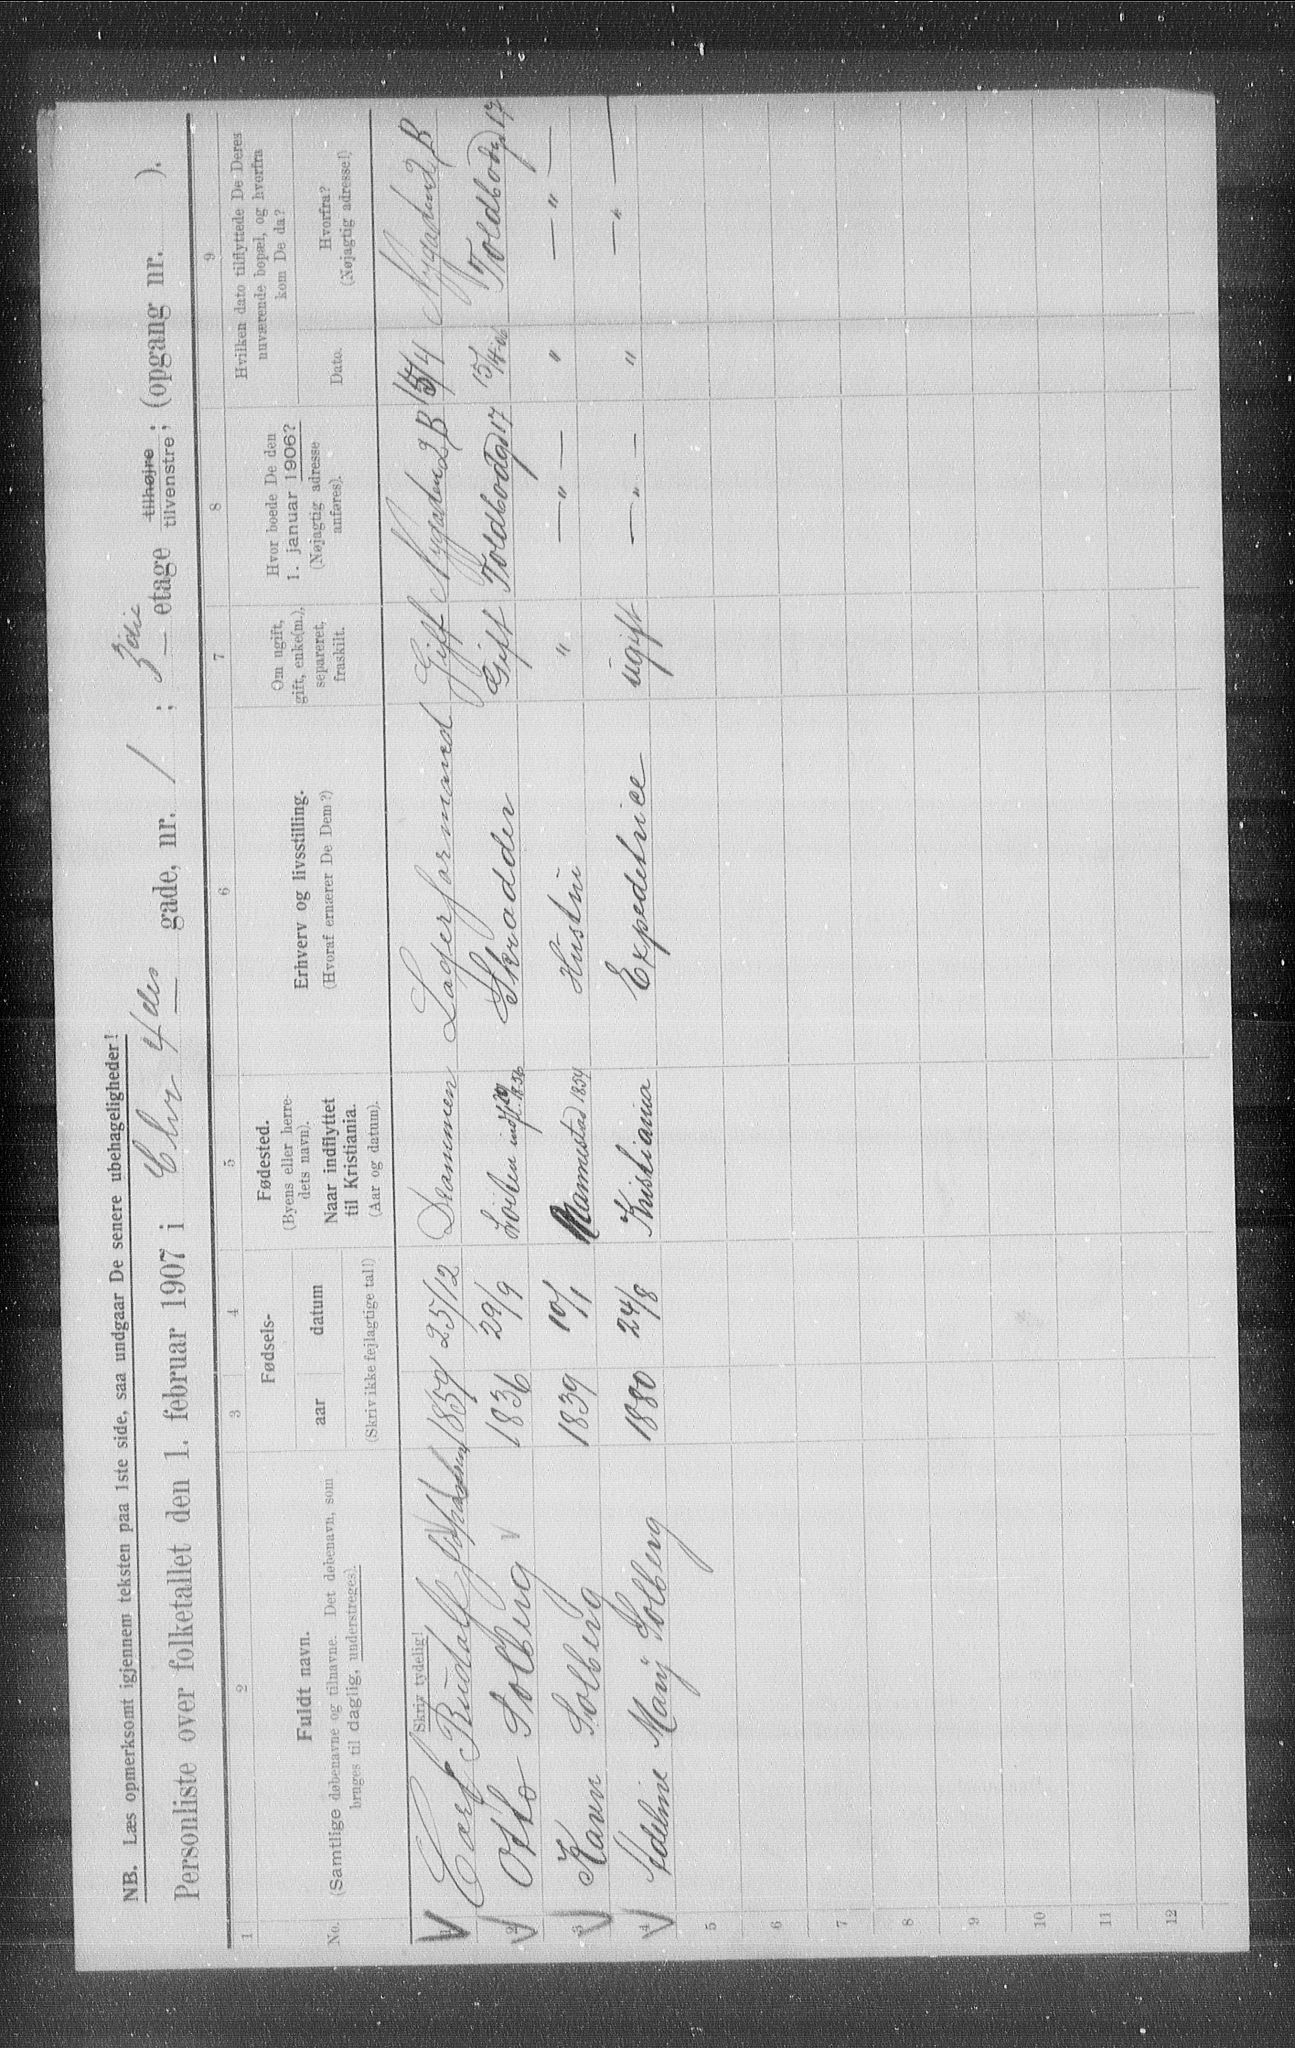 NB. Læs opmerksomt igjennem teksten paa 1ste side, saa undgaar De senere ubehageligheder!
Personliste over folketallet den 1. februar 1907 i Chr 4des gade, nr. 1 ; 3die etage tilhøjre ; tilvenstre ; (opgang nr. ).
1 2 3 4 5 6 7 8 9
No.
Fuldt navn.
(Samtlige døbenavne og tilnavne. Det døbenavn, som
bruges til daglig, understreges).
Skriv tydelig!
Fødsels-
aar datum
(Skriv ikke fejlagtige tal!)
Fødested.
(Byens eller herre-
dets navn).
Naar indflyttet
til Kristiania.
(Aar og datum).
Erhverv og livsstilling.
(Hvoraf ernærer De Dem?)
Om ugift,
gift, enke(m.),
separeret,
fraskilt.
Hvor boede De den
1. januar 1906?
(Nøjagtig adresse
anføres).
Hvilken dato tilflyttede De Deres
nuværende bopæl, og hvorfra
kom De da?
Dato.
Hvorfra?
(Nøjagtig adresse!)
1 Carl Rudolf 1859 25/12 Drammen Lagerformand Gift Nygaden 2B 15/4 Nygaden 2B
2 Otto Solberg 1836 29/9 Løiten indfl. 1856 Skrædder Gift Toldbodgd 17 15/4-06 Toldbodgd 17
3 Karen Solberg 1839 10/1 1859 Hustru " — " — " — " —
4 Fedeline Marij Solberg 1880 24/8 Kristiania Expedetrice ugift — " — " — " —
5
6
7
8
9
10
11
12